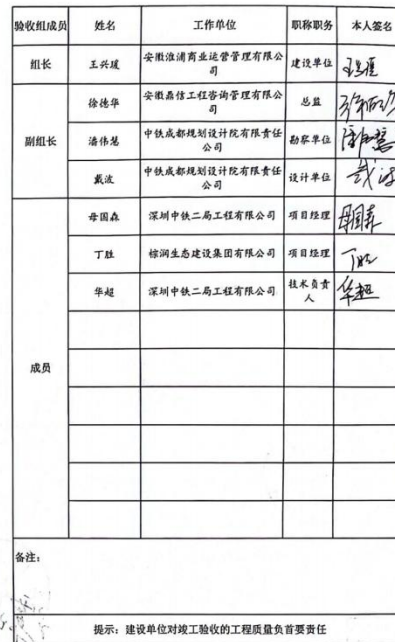 验收组成员 姓名 工作单位 职称职务 本人签名
组长 王兴瑷 安徽淮浦商业运营管理有限公司 建设单位
副组长 徐德华 安徽鼎信工程咨询管理有限公司 总监
潘伟慧 中铁成都规划设计院有限责任公司 勘察单位
戴波 中铁成都规划设计院有限责任公司 设计单位 戴波
成员 母国森 深圳中铁二局工程有限公司 项目经理 母国森
丁胜 棕润生态建设集团有限公司 项目经理 丁胜
华超 深圳中铁二局工程有限公司 技术负责人 华超
备注:
提示:建设单位对竣工验收的工程质量负首要责任